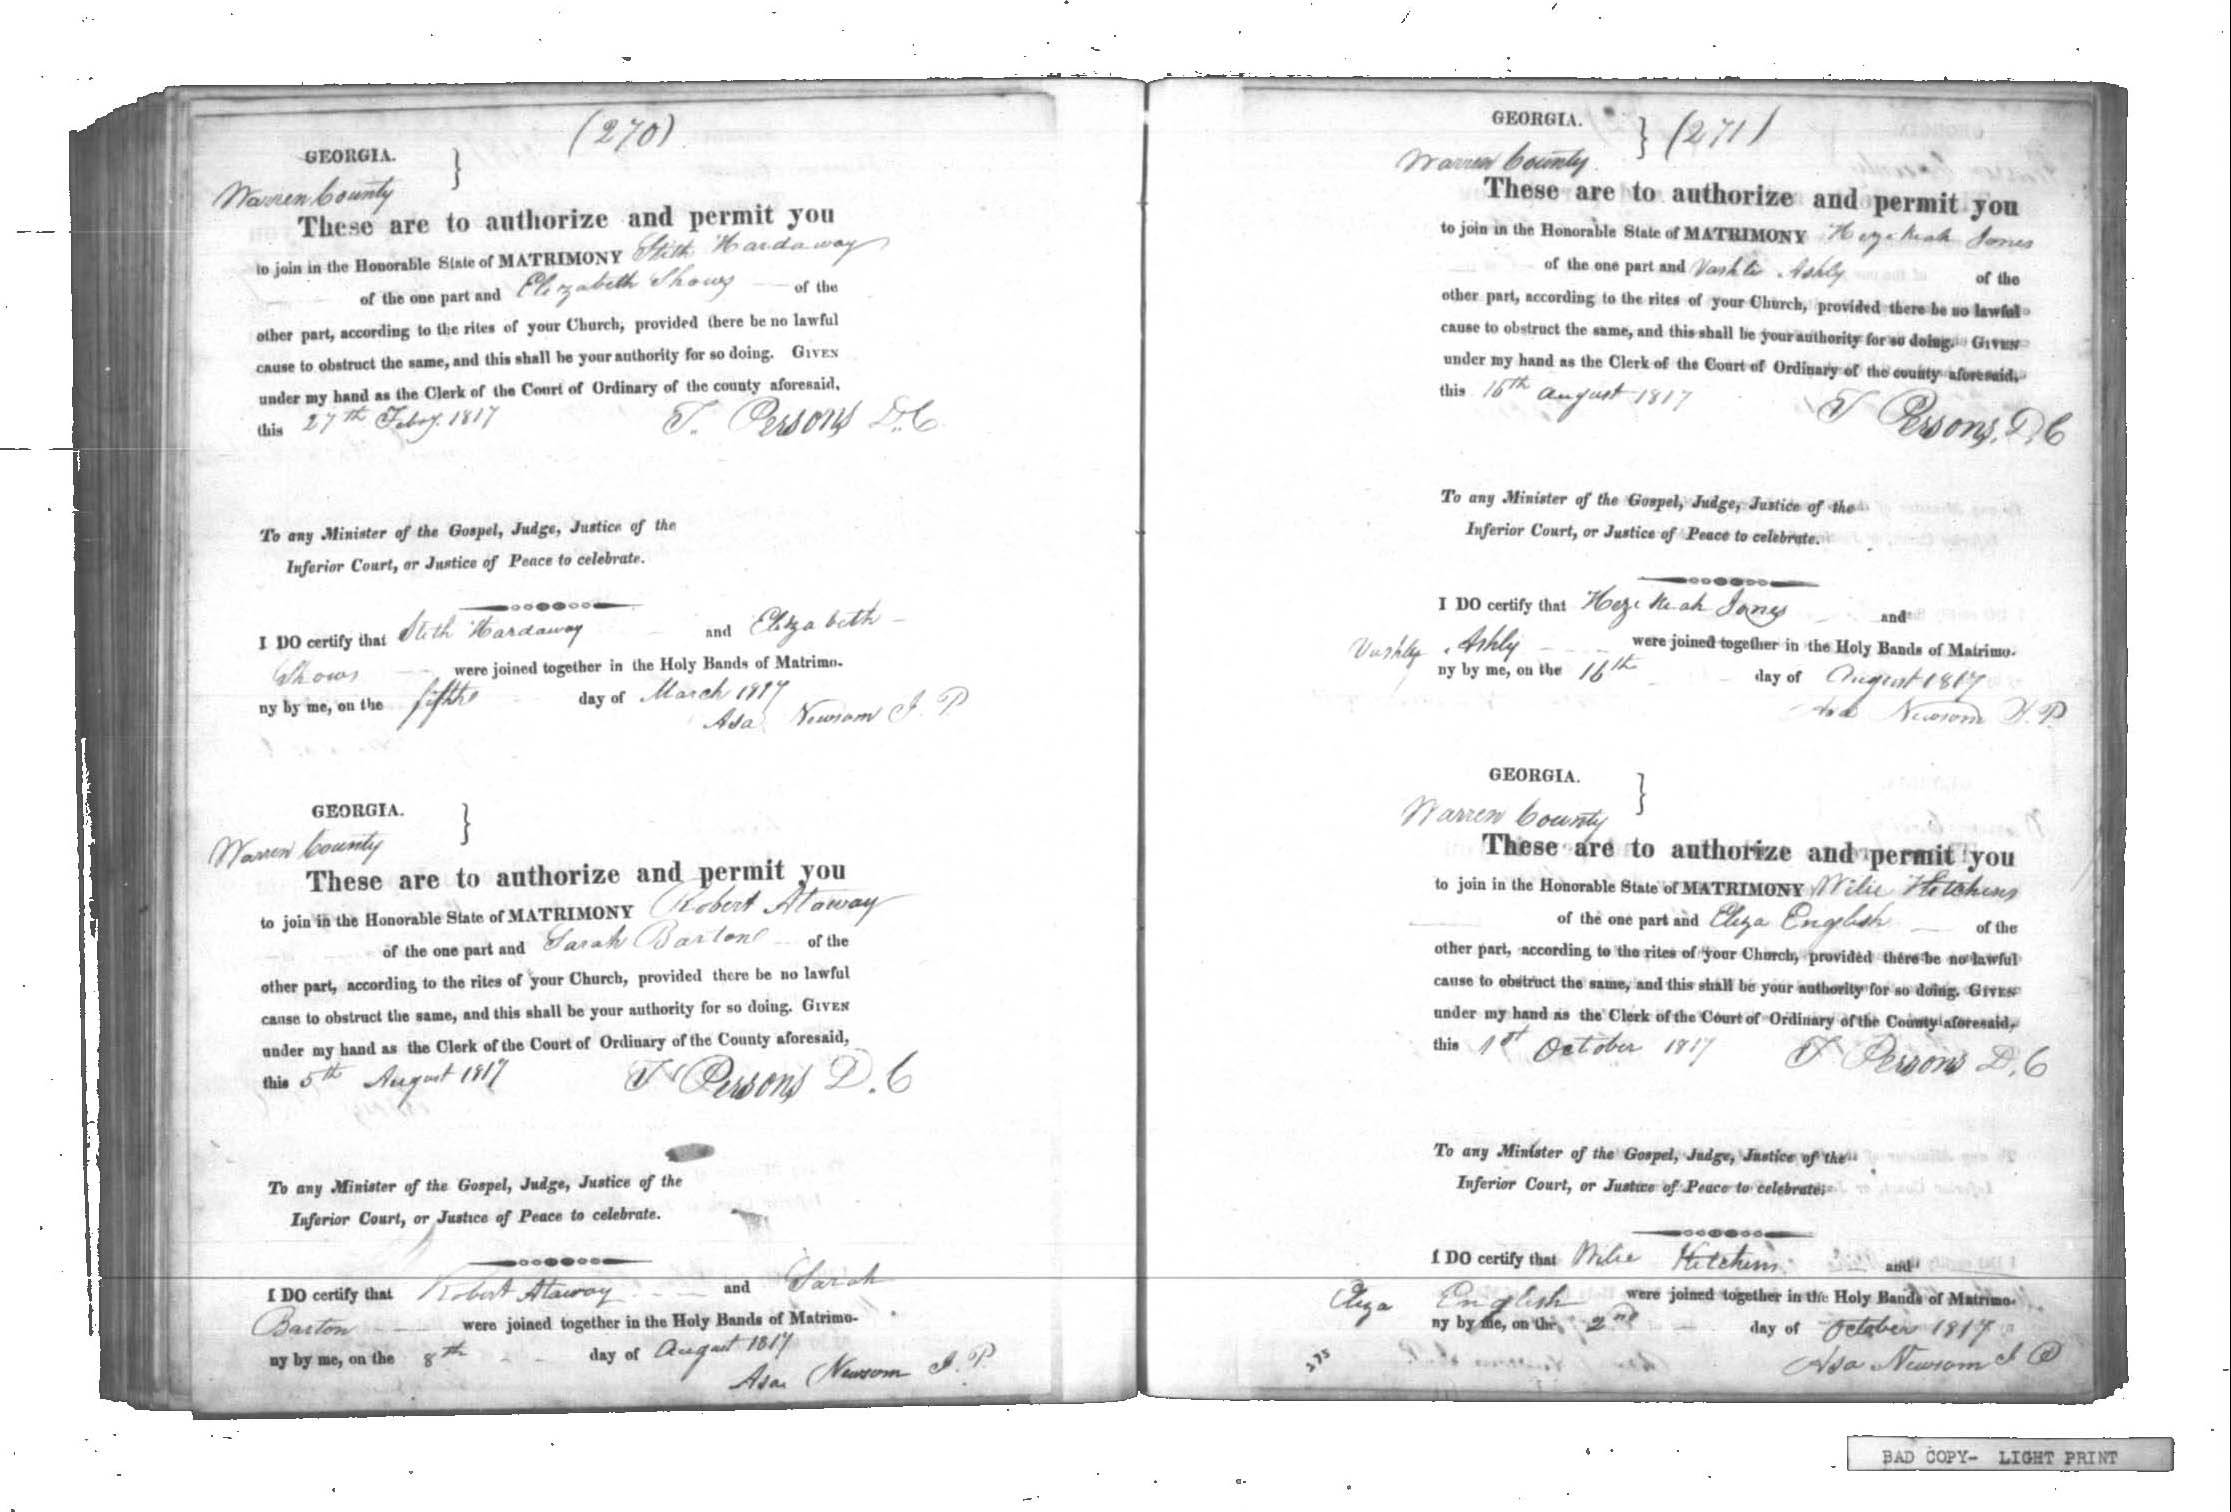 (270)
GEORGIA. }
Warren County
These are to authorize and permit you
to join in the Honorable State of MATRIMONY Stith Hardaway
of the one part and Elizabeth Shows of the
other part, according to the rites of your Church, provided there be no lawful
cause to obstruct the same, and this shall be your authority for so doing. GIVEN
under my hand as the Clerk of the Court of Ordinary of the county aforesaid,
this 27th Feby. 1817 T. Persons D.C
To any Minister of the Gospel, Judge, Justice of the
Inferior Court, or Justice of Peace to celebrate.
I DO certify that Stith Hardaway and Elizabeth
Shows were joined together in the Holy Bands of Matrimo-
ny by me, on the fifth day of March 1817
Asa Newsom J. P.
GEORGIA. }
Warren County
These are to authorize and permit you
to join in the Honorable State of MATRIMONY Robert Ataway
of the one part and Sarah Barton of the
other part, according to the rites of your Church, provided there be no lawful
cause to obstruct the same, and this shall be your authority for so doing. GIVEN
under my hand as the Clerk of the Court of Ordinary of the County aforesaid,
this 5th August 1817 T Persons D.C
To any Minister of the Gospel, Judge, Justice of the
Inferior Court, or Justice of Peace to celebrate.
I DO certify that Robert Ataway and Sarah
Barton were joined together in the Holy Bands of Matrimo-
ny by me, on the 8th day of August 1817
Asa Newsom J. P.
GEORGIA. } (271)
Warren County
These are to authorize and permit you
to join in the Honorable State of MATRIMONY Hezekiah Jones
of the one part and Vashti Ashly of the
other part, according to the rites of your Church, provided there be no lawful
cause to obstruct the same, and this shall be your authority for so doing. GIVEN
under my hand as the Clerk of the Court of Ordinary of the county aforesaid,
this 16th August 1817 T Persons, D.C
To any Minister of the Gospel, Judge, Justice of the
Inferior Court, or Justice of Peace to celebrate.
I DO certify that Hezekiah Jones and
Vashty Ashly were joined together in the Holy Bands of Matrimo-
ny by me, on the 16th day of August 1817
Asa Newsom J. P.
GEORGIA. }
Warren County
These are to authorize and permit you
to join in the Honorable State of MATRIMONY Wilie Hitchins
of the one part and Eliza English of the
other part, according to the rites of your Church, provided there be no lawful
cause to obstruct the same, and this shall be your authority for so doing. GIVEN
under my hand as the Clerk of the Court of Ordinary of the County aforesaid,
this 1st October 1817 T Persons D.C
To any Minister of the Gospel, Judge, Justice of the
Inferior Court, or Justice of Peace to celebrate.
I DO certify that Wilie Hitchins and
Eliza English were joined together in the Holy Bands of Matrimo-
ny by me, on the 2nd day of October 1817
Asa Newsom J P
BAD COPY- LIGHT PRINT